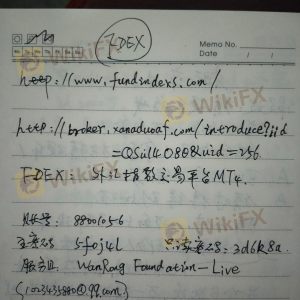 ZDEX
Memo No.
Date / /
http://www.fundindexs.com/
WikiFX
http://broker.xanaduoaf.com/introduce?id
=QSul4O80&uid=256
WikiFX
FDEX 外汇指数交易平台MT4.
账号: 88001056
主密码 5foj4l 只读密码: 3d6k8a
服务器 WanRong Foundation-Live
WikiFX
(1023435880@qq.com)